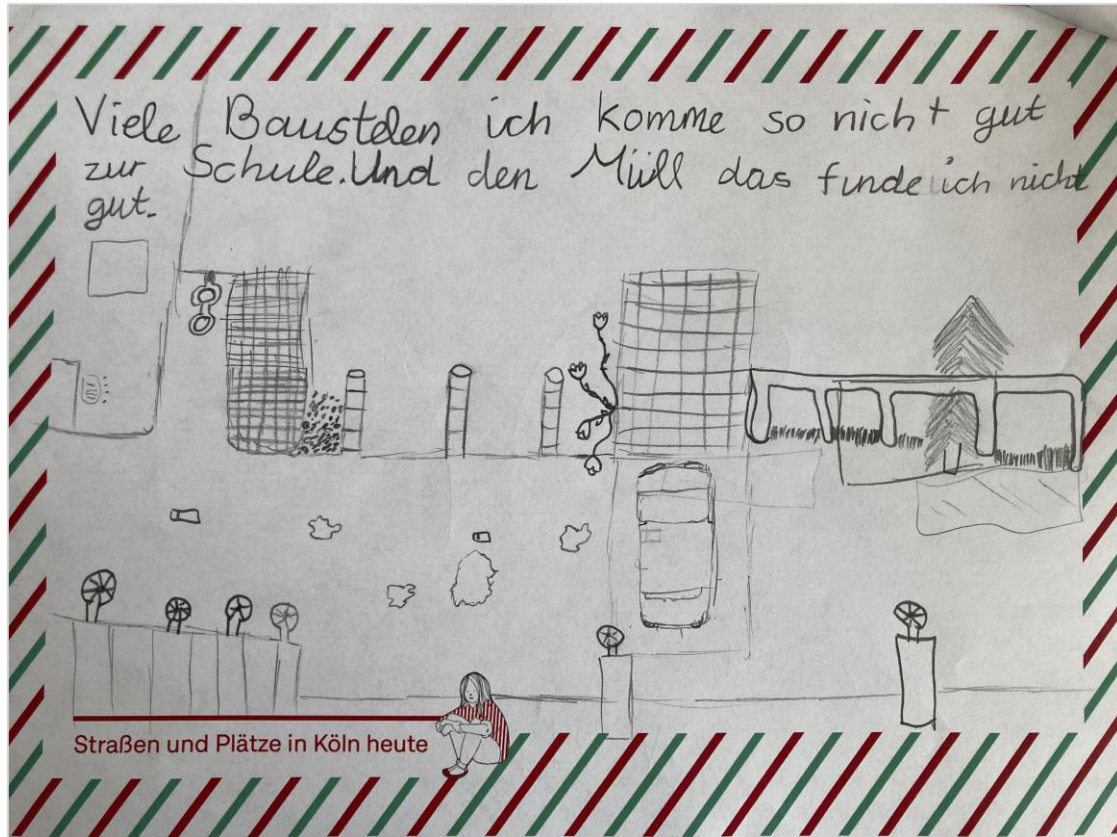 Viele Baustelen ich komme so nicht gut
zur Schule. Und den Müll das finde ich nicht
gut.
Straßen und Plätze in Köln heute